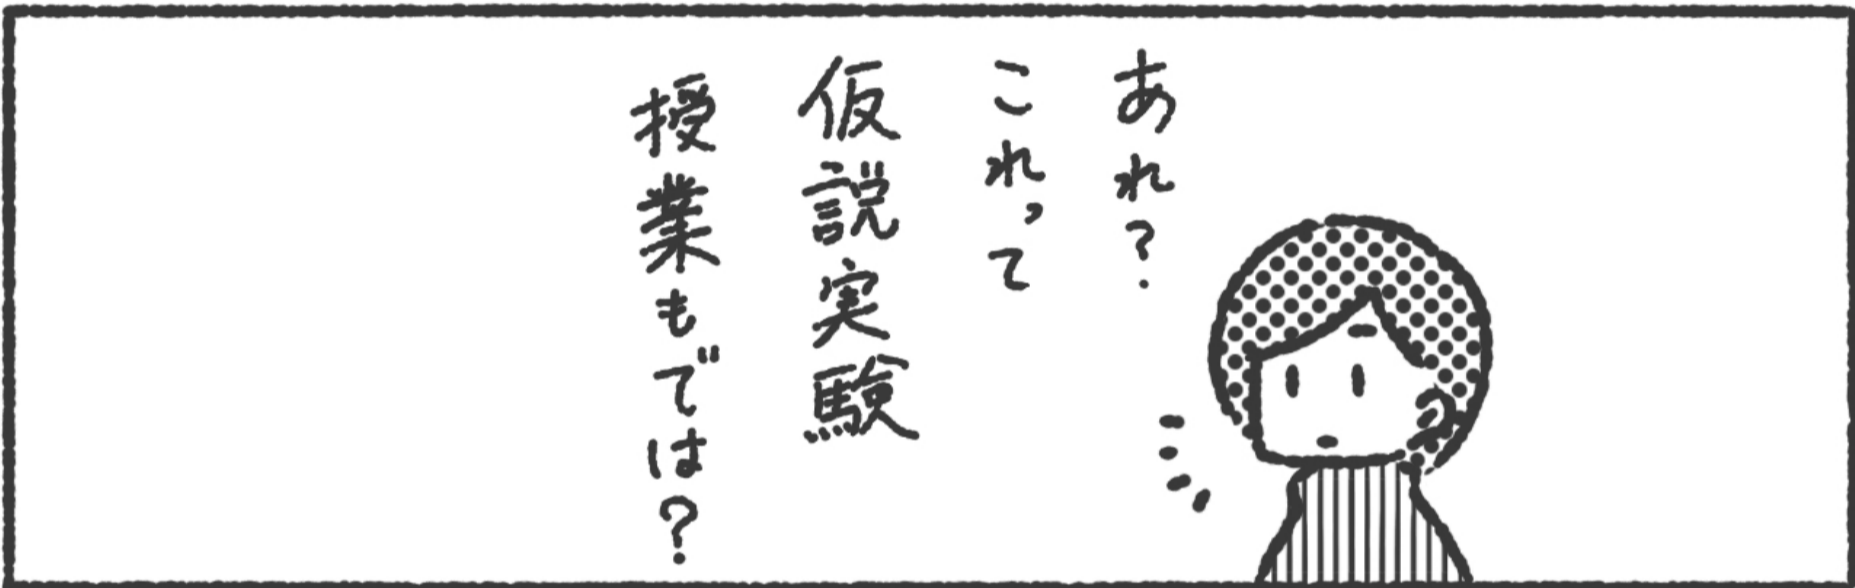 あれ?
これって
仮説実験
授業もでは?